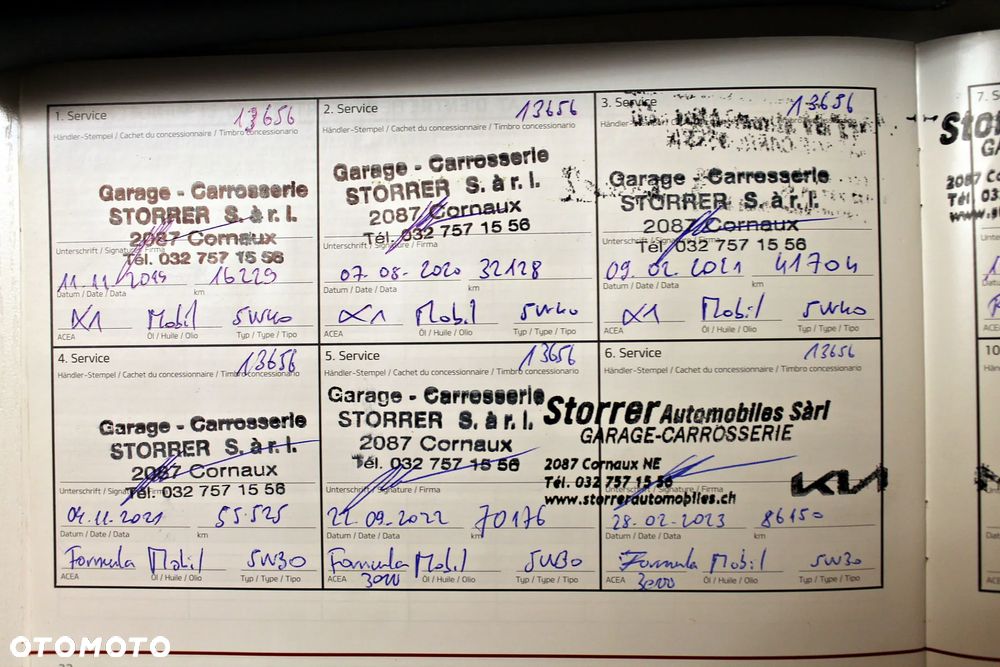 1. Service 13656
Händler-Stempel / Cachet du concessionnaire / Timbro concessionario
Garage - Carrosserie
STORRER S.à r.l.
2087 Cornaux
Unterschrift / Signature / Firma
Tél. 032 757 15 56
11.11.2019 16229
Datum / Date / Data km
Mobil 5W40
ACEA Öl / Huile / Olio Typ / Type / Tipo
2. Service 13656
Händler-Stempel / Cachet du concessionnaire / Timbro concessionario
Garage - Carrosserie
STORRER S.à r.l.
2087 Cornaux
Tél. 032 757 15 56
Unterschrift / Signature / Firma
07.08.2020 32128
Datum / Date / Data km
Mobil 5W40
ACEA Öl / Huile / Olio Typ / Type / Tipo
3. Service 13656
Garage - Carrosserie
STORRER S.à r.l.
2087 Cornaux
Tél. 032 757 15 56
09.02.2021 41704
Datum / Date / Data km
Mobil 5W40
ACEA Öl / Huile / Olio Typ / Type / Tipo
4. Service 13656
Händler-Stempel / Cachet du concessionnaire / Timbro concessionario
Garage - Carrosserie
STORRER S.à r.l.
2087 Cornaux
Unterschrift / Signature / Firma
Tél. 032 757 15 56
04.11.2021 55.525
Datum / Date / Data km
Formula Mobil 5W30
ACEA Öl / Huile / Olio Typ / Type / Tipo
5. Service 13656
Händler-Stempel / Cachet du concessionnaire / Timbro concessionario
Garage - Carrosserie
STORRER S.à r.l.
2087 Cornaux
Tél. 032 757 15 56
Unterschrift / Signature / Firma
22.09.2022 70176
Datum / Date / Data km
Formula Mobil 5W30
ACEA 3000 Öl / Huile / Olio Typ / Type / Tipo
6. Service 13656
Händler-Stempel / Cachet du concessionnaire / Timbro concessionario
Storrer Automobiles Sàrl
GARAGE-CARROSSERIE
2087 Cornaux NE
Tél. 032 757 15 56
Unterschrift / Signature / Firma
www.storrerautomobiles.ch
KIA
28.02.2023 86150
Datum / Date / Data km
Formula Mobil 5W30
ACEA 3000 Öl / Huile / Olio Typ / Type / Tipo
OTOMOTO